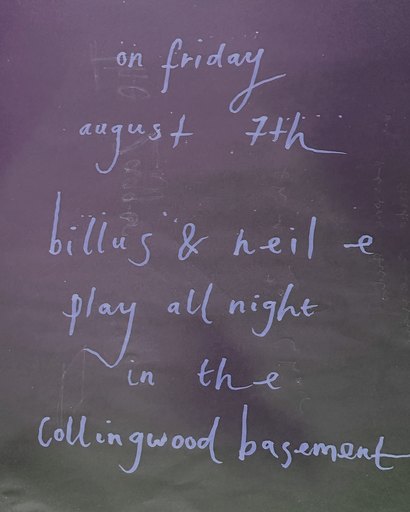 on friday
august 7th
billus & neil e
play all night
in the
Collingwood basement